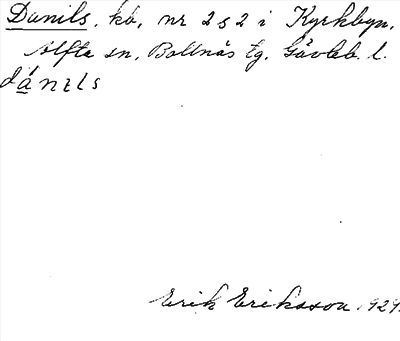 Danils, kå, nr 2 s 2 i Kyrkbyn,
Alfta sn, Bollnäs tg. Gävleb. l.
dánɩls
Erik Eriksson. 1929.